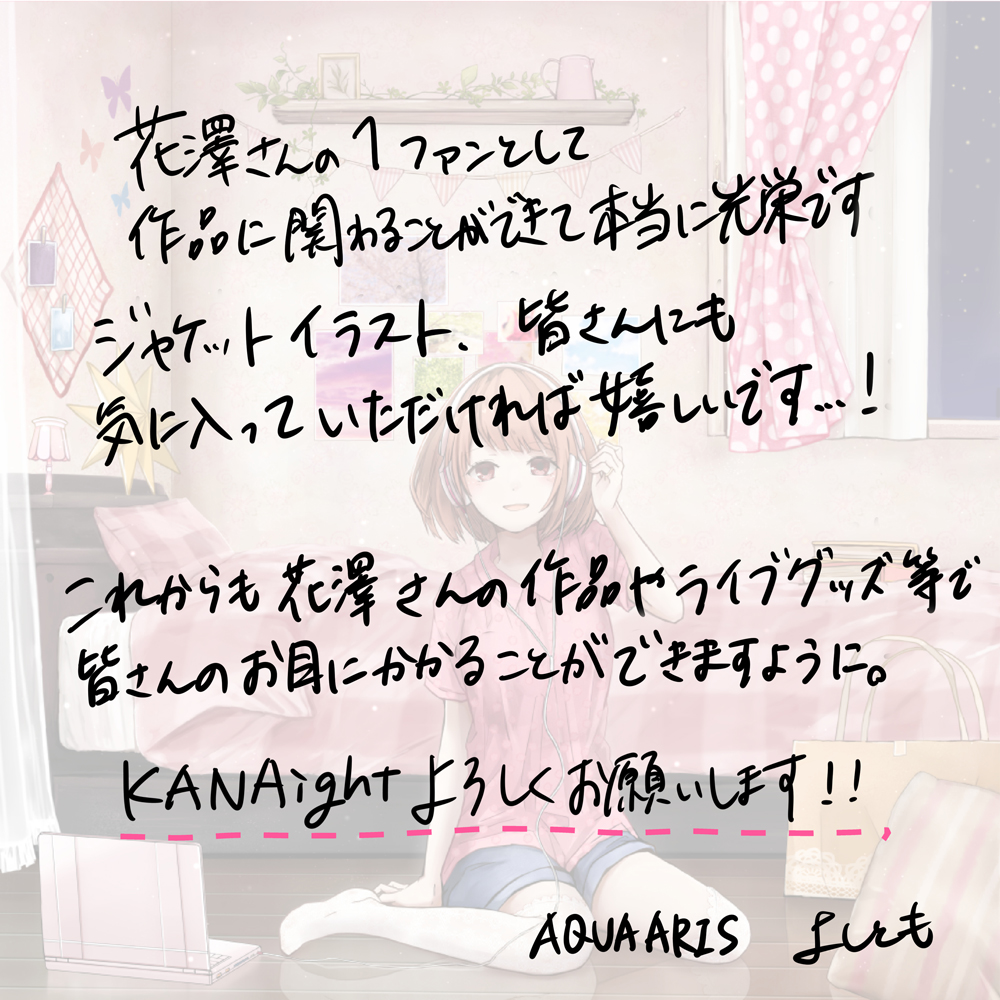 花澤さんの1ファンとして
作品に関わることができて本当に光栄です
ジャケットイラスト、皆さんにも
気に入っていただければ嬉しいです...!
これからも花澤さんの作品やライブグッズ等で
皆さんのお目にかかることができますように。
KANAight よろしくお願いします!!
AQUA ARIS よしとも